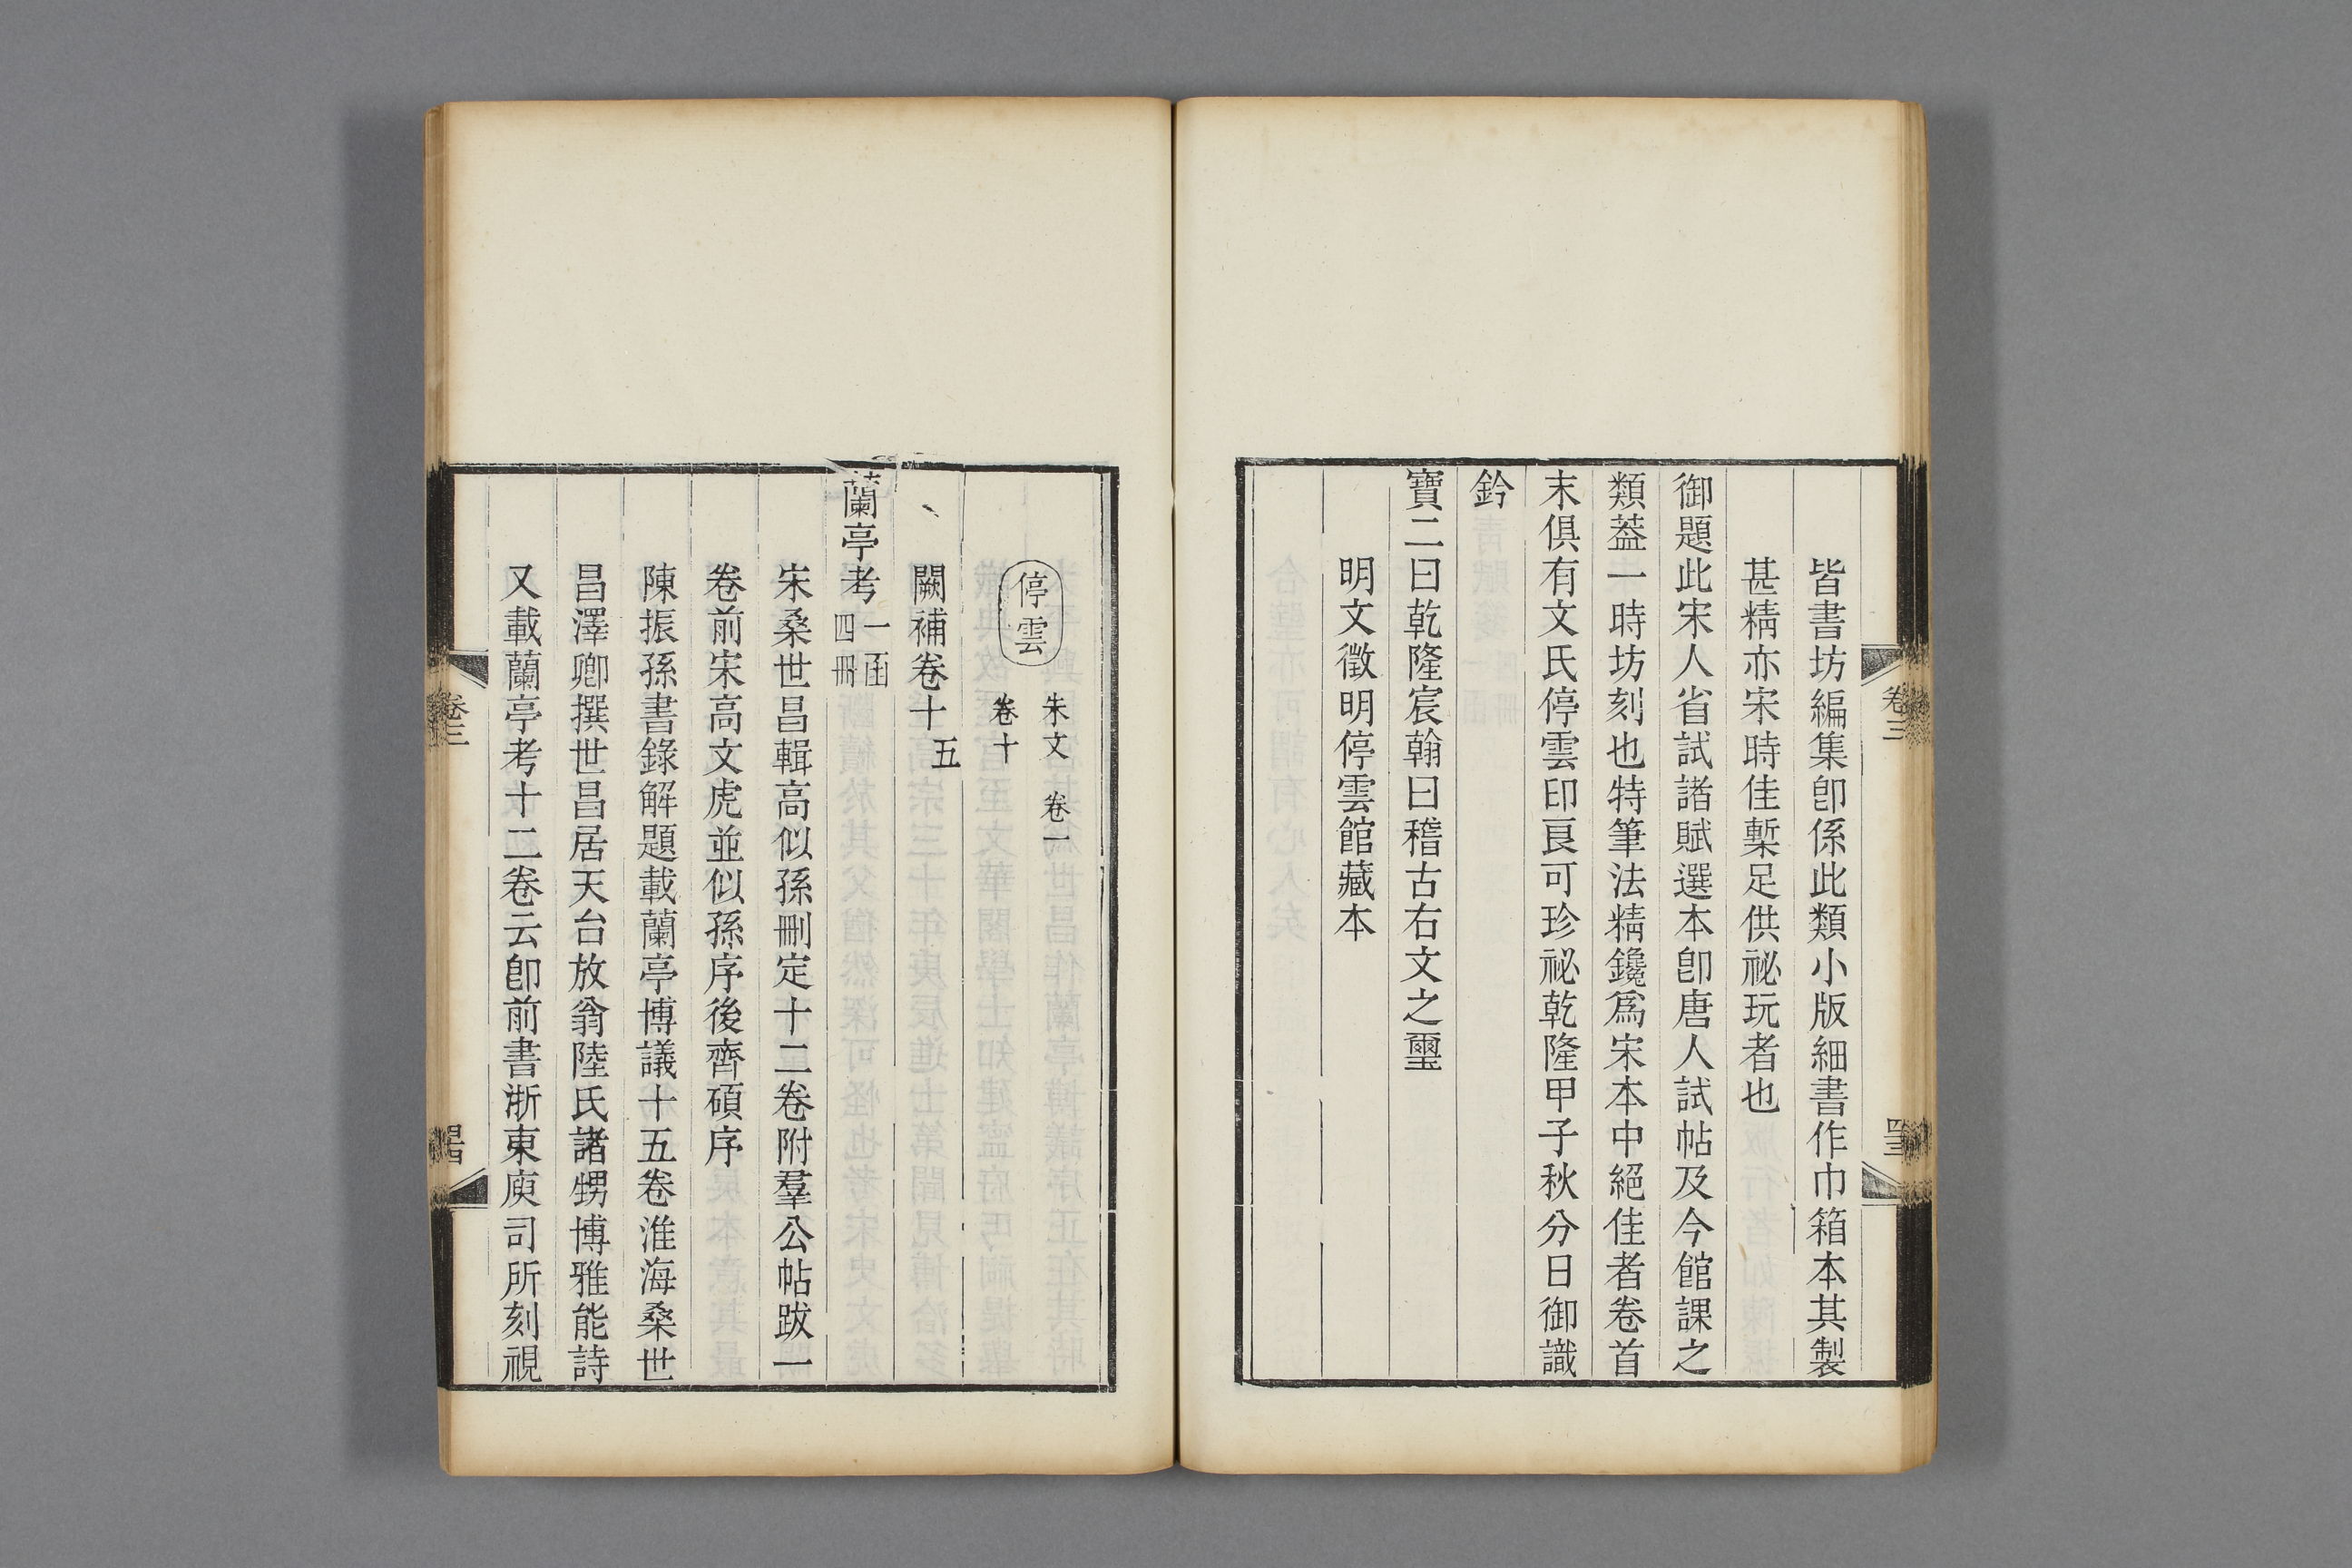 皆書坊編集卽係此類小版細書作巾箱本其製
甚精亦宋時佳槧足供祕玩者也
御題此宋人省試諸賦選本卽唐人試帖及今館課之
類葢一時坊刻也特筆法精鑱爲宋本中絕佳者卷首
末俱有文氏停雲印良可珍祕乾隆甲子秋分日御識
鈐
寶二曰乾隆宸翰曰稽古右文之璽
明文徵明停雲館藏本
卷三
四三
停雲
朱文 卷一
卷十
闕補卷十五
蘭亭考
一函
四冊
宋桑世昌輯高似孫刪定十二卷附羣公帖跋一
卷前宋高文虎並似孫序後齊碩序
陳振孫書錄解題載蘭亭博議十五卷淮海桑世
昌澤卿撰世昌居天台放翁陸氏諸甥博雅能詩
又載蘭亭考十二卷云卽前書浙東庾司所刻視
卷三